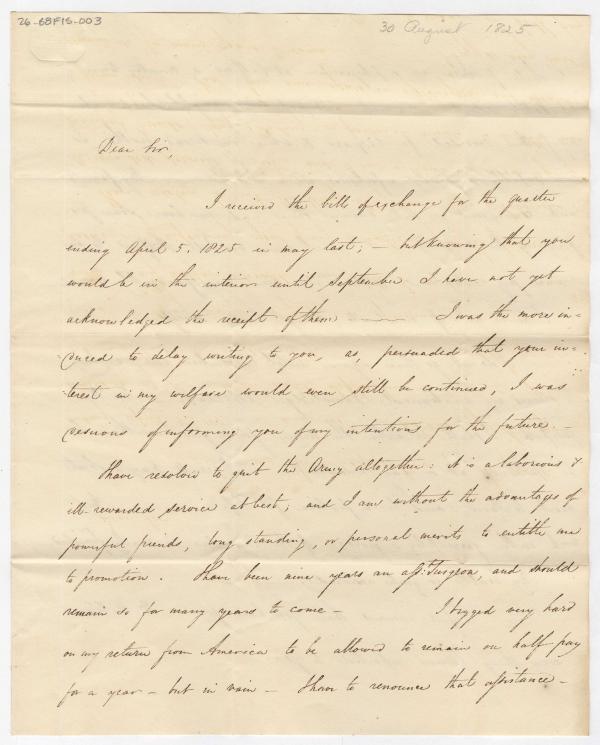 26-68F15-003
30 August 1825
Dear Sir,
I received the bills of exchange for the quarter
ending April 5. 1825 in may last; - but knowing that you
would be in the interior until September I have not yet
acknowledged the receipt of them —— I was the more in=
duced to delay writing to you, as, persuaded that your in=
terest in my welfare would even still be continued, I was
desirous of informing you of my intentions for the future. -
I have resolved to quit the Army altogether: it is a laborious &
ill-rewarded service at best; and I am without the advantages of
powerful friends, long standing, or personal merits to entitle me
to promotion. I have been nine years an asst: Surgeon, and should
remain so for many years to come - I begged very hard
on my return from America to be allowed to remain on half pay
for a year - but in vain - I have to renounce that assistance -